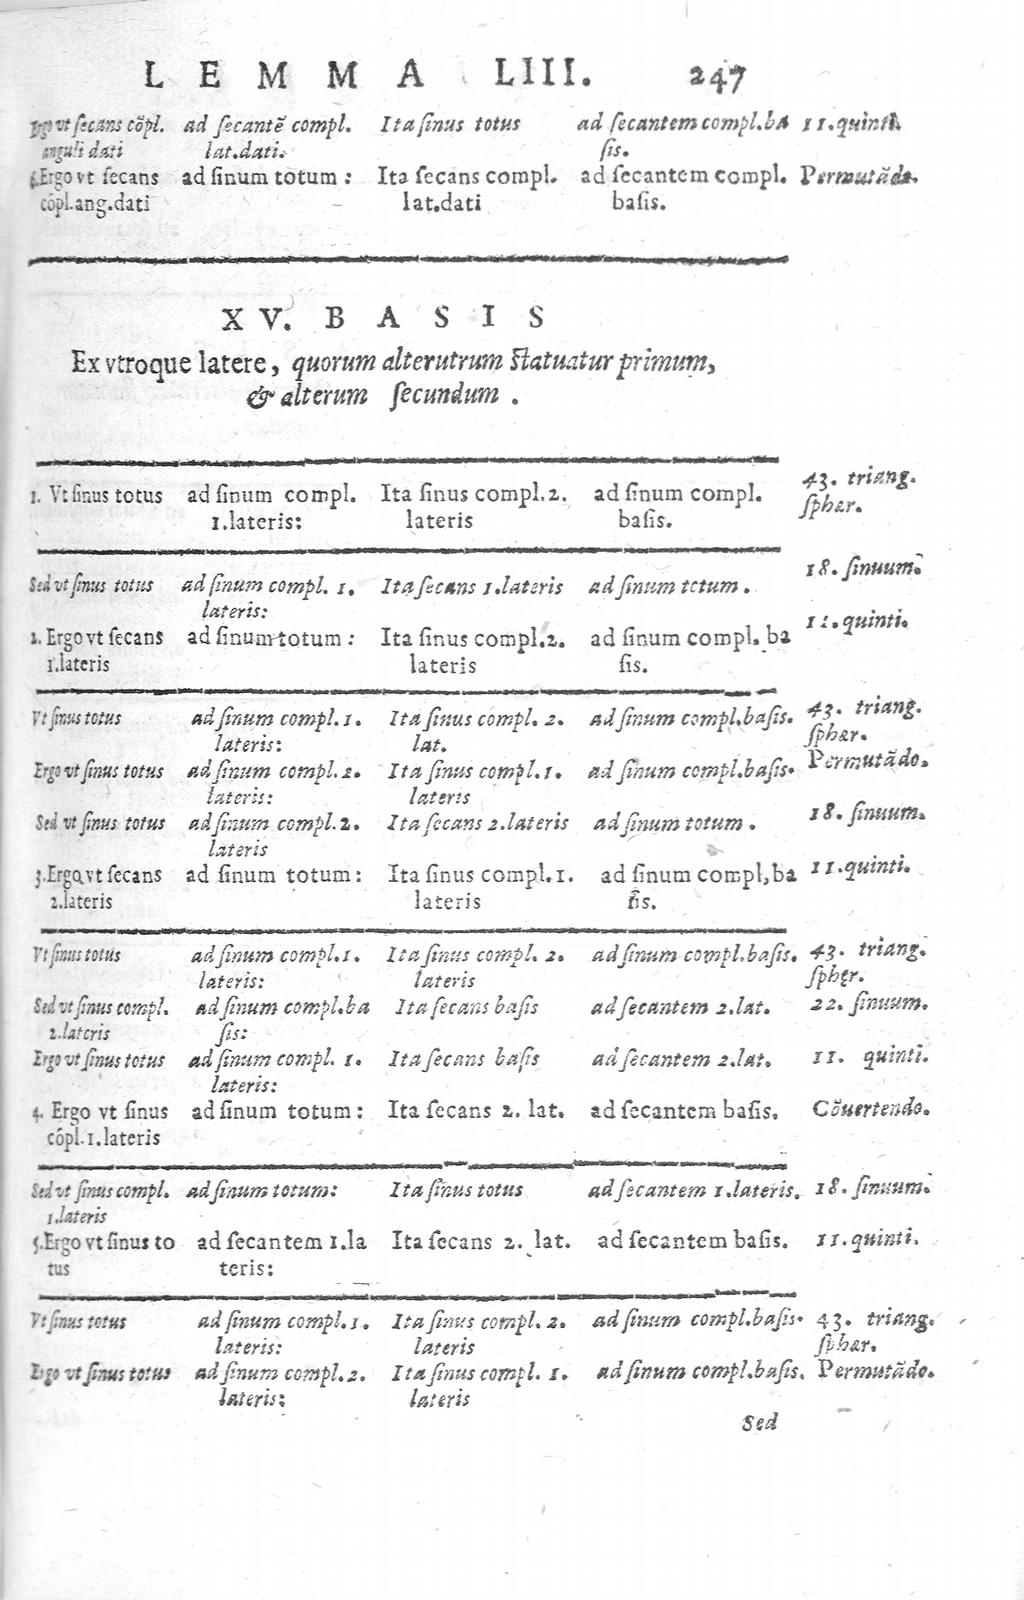 LEMMA LIII. 247
Ergo vt secans cõpl. ad secantẽ compl. Ita sinus totus ad secantem compl. ba 11. quinti.
anguli dati lat. dati. sis.
6. Ergo vt secans ad sinum totum : Ita secans compl. ad secantem compl. Permutãdo.
cõpl. ang. dati lat. dati basis.
XV. BASIS
Ex vtroque latere, quorum alterutrum statuatur primum,
& alterum secundum .
1. Vt sinus totus ad sinum compl. Ita sinus compl. 2. ad sinum compl. 43. triang.
1. lateris: lateris basis. sphær.
Sed vt sinus totus ad sinum compl. 1. Ita secans 1. lateris ad sinum totum . 18. sinuum.
lateris:
2. Ergo vt secans ad sinum totum : Ita sinus compl. 2. ad sinum compl. ba 11. quinti.
1. lateris lateris sis.
Vt sinus totus ad sinum compl. 1. Ita sinus compl. 2. ad sinum compl. basis. 43. triang.
lateris: lat. sphær.
Ergo vt sinus totus ad sinum compl. 2. Ita sinus compl. 1. ad sinum compl. basis. Permutãdo.
lateris: lateris
Sed vt sinus totus ad sinum compl. 2. Ita secans 2. lateris ad sinum totum . 18. sinuum.
lateris
3. Ergo vt secans ad sinum totum: Ita sinus compl. 1. ad sinum compl, ba 11. quinti.
2. lateris lateris sis.
Vt sinus totus ad sinum compl. 1. Ita sinus compl. 2. ad sinum compl. basis. 43. triang.
lateris: lateris sphęr.
Sed vt sinus compl. ad sinum compl. ba Ita secans basis ad secantem 2. lat. 22. sinuum.
2. lateris sis:
Ergo vt sinus totus ad sinum compl. 1. Ita secans basis ad secantem 2. lat. 11. quinti.
lateris:
4. Ergo vt sinus ad sinum totum: Ita secans 2. lat. ad secantem basis. Cõuertendo.
cõpl. 1. lateris
Sed vt sinus compl. ad sinum totum: Ita sinus totus ad secantem 1. lateris. 18. sinuum.
1. lateris
5. Ergo vt sinus to ad secantem 1. la Ita secans 2. lat. ad secantem basis. 11. quinti.
tus teris:
Vt sinus totus ad sinum compl. 1. Ita sinus compl. 2. ad sinum compl. basis. 43. triang.
lateris: lateris sphær.
Ergo vt sinus totus ad sinum compl. 2. Ita sinus compl. 1. ad sinum compl. basis. Permutãdo.
lateris: lateris
Sed